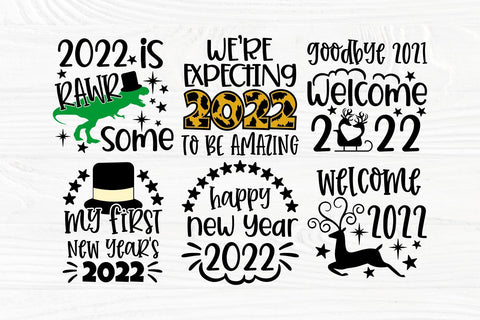 2022 is
RAWR
some
WE'RE
EXPECTING
2022
TO BE AMAZING
goodbye 2021
welcome
2022
My first
NEW YEAR'S
2022
happy
new year
2022
welcome
2022